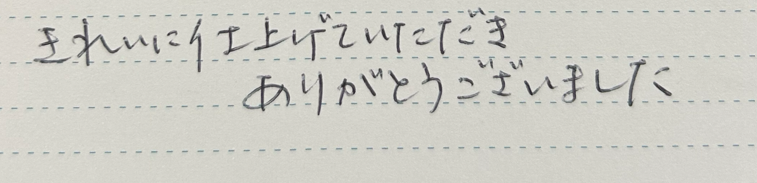 きれいに仕上げていただき
ありがとうございました